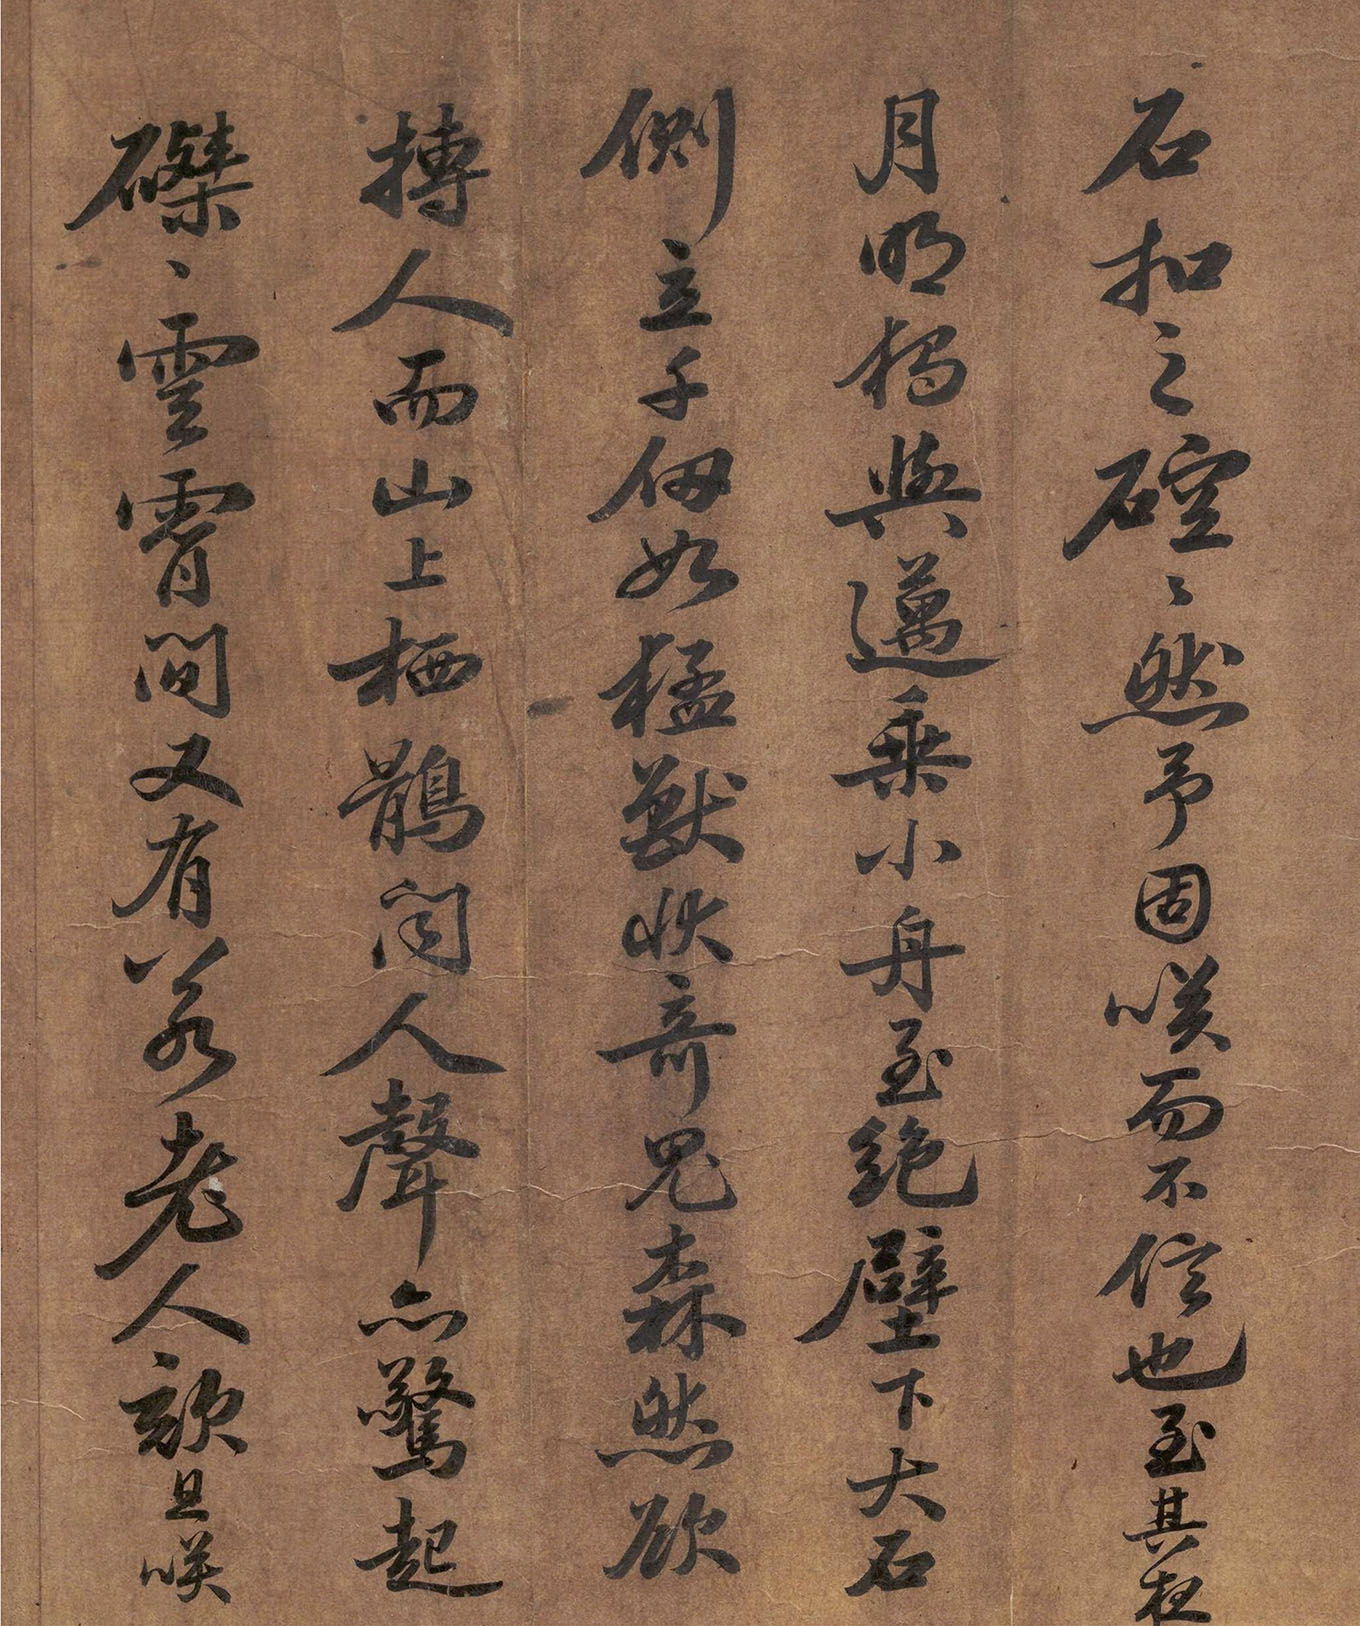 石扣之硿〻然予固咲而不信也至其
月明獨與邁乗小舟至絶壁下大石
側立千仞如猛獸状奇鬼森然欲
搏人而山上栖鶻聞人聲亦驚起
磔〻雲霄間又有若老人欬且咲